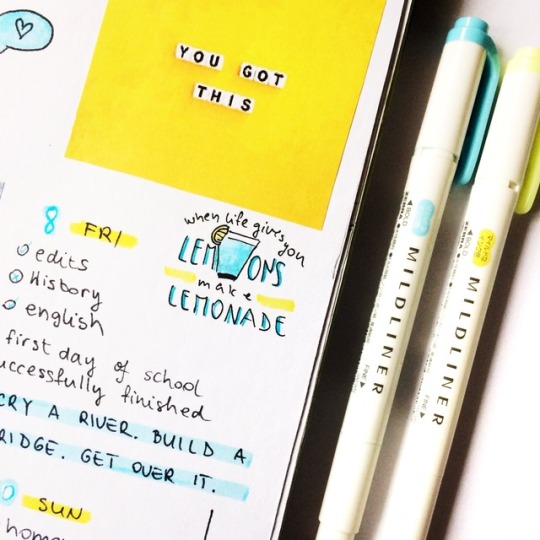 YOU GOT
THIS
8 FRI
edits
History
english
first day of school
uccessfully finished
CRY A RIVER. BUILD A
RIDGE. GET OVER IT.
0 SUN
home
when life gives you
LEMONS
make
LEMONADE
BOLD
MILDLINER
FINE
BOLD
MILDLINER
FINE